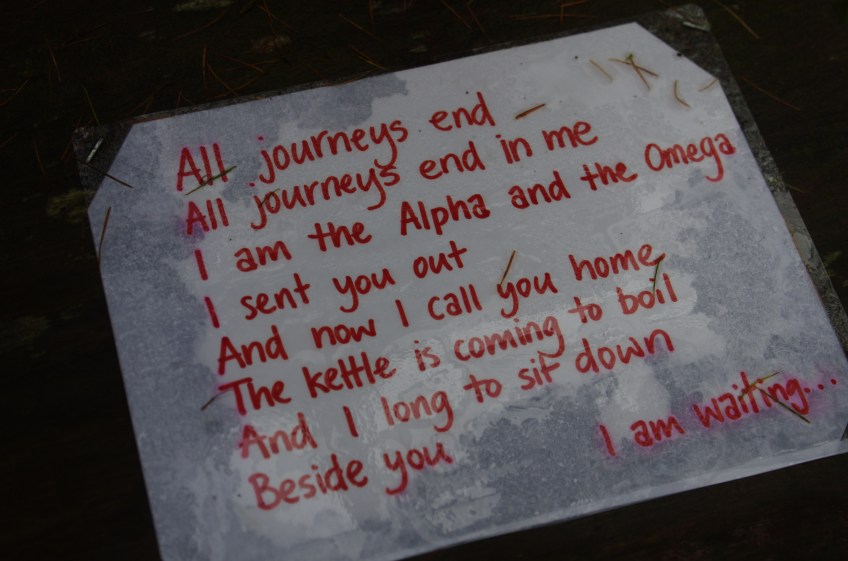 All journeys end
All journeys end in me
I am the Alpha and the Omega
I sent you out
And now I call you home
The kettle is coming to boil
And I long to sit down
Beside you.
I am waiting...